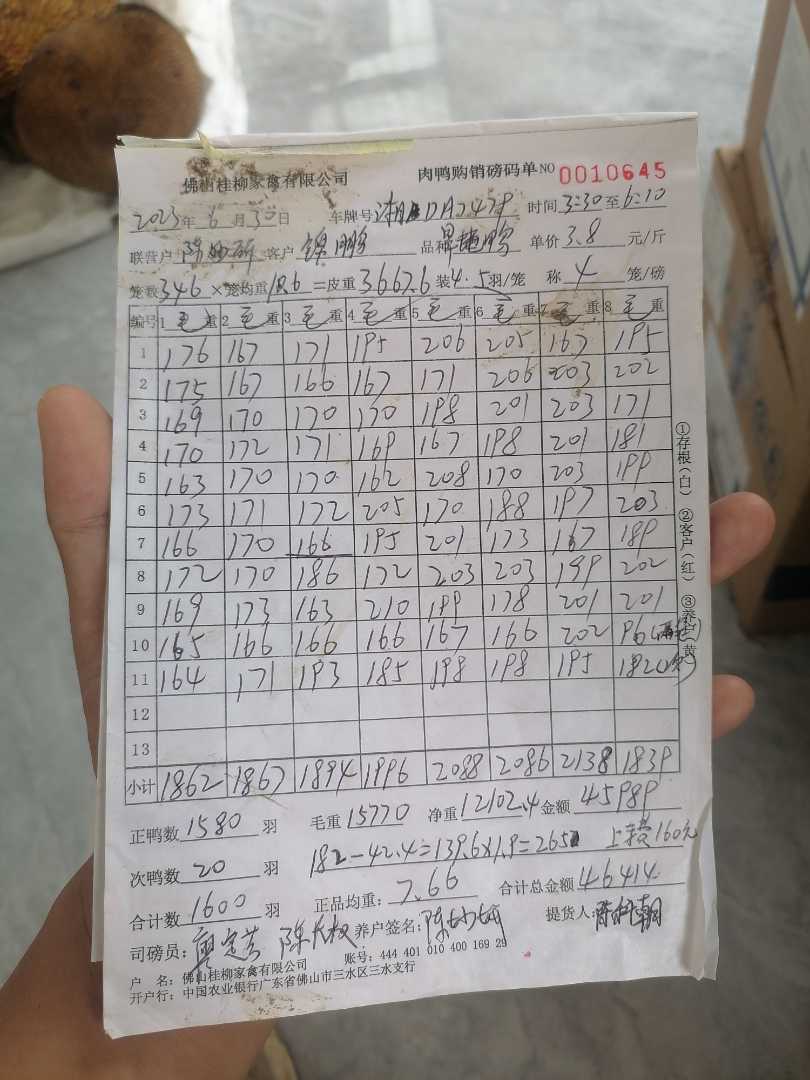 佛山桂柳家禽有限公司 肉鸭购销磅码单 NO 0010645
2023年6月30日 车牌号 时间3:30至6:10
联营户 客户 锦鹏 品种 单价3.8元/斤
笼数346×笼均重10.6=皮重3667.6装4.5羽/笼 称4笼/磅
编号 1 毛重 2 毛重 3 毛重 4 毛重 5 毛重 6 毛重 7 毛重 8 毛重
1 176 167 171 195 206 205 167 195
2 175 167 166 167 171 206 203 202
3 169 170 170 170 198 201 203 171
4 170 172 171 169 167 198 201 181
5 163 170 170 162 208 170 203 199
6 173 171 172 205 170 188 197 203
7 166 170 166 195 201 173 167 189
8 172 170 186 172 203 203 199 202
9 169 173 163 210 199 178 201 201
10 165 166 166 166 167 166 202 96
11 164 171 193 185 198 198 195 182
12
13
小计 1862 1867 1894 1996 2088 2086 2138 1839
正鸭数1580羽 毛重15770 净重12102.4金额45989
次鸭数20羽 182-42.4=139.6×1.9=265 160元
合计数1600羽 正品均重:7.66 合计总金额46414
司磅员: 养户签名: 提货人:
户 名:佛山桂柳家禽有限公司 账号:444 401 010 400 169 29
开户行:中国农业银行广东省佛山市三水区三水支行
①存根(白) ②客户(红) ③养户(黄)